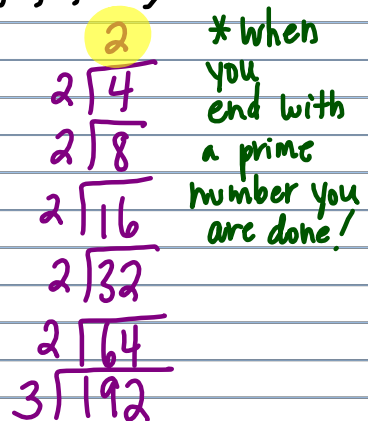 2
2 4
2 8
2 16
2 32
2 64
3 192
* When
you
end with
a prime
number you
are done!